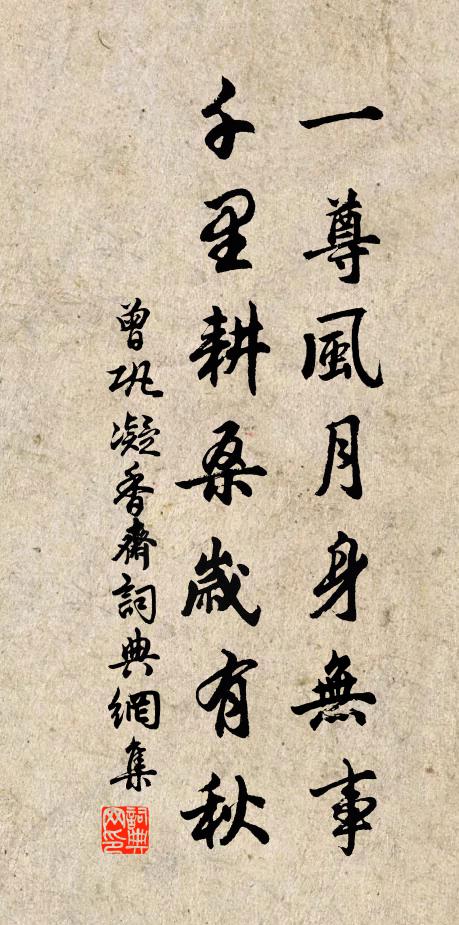 一尊風月身無事
千里耕桑歲有秋
曾巩凝香齋詞典網集
詞典网印